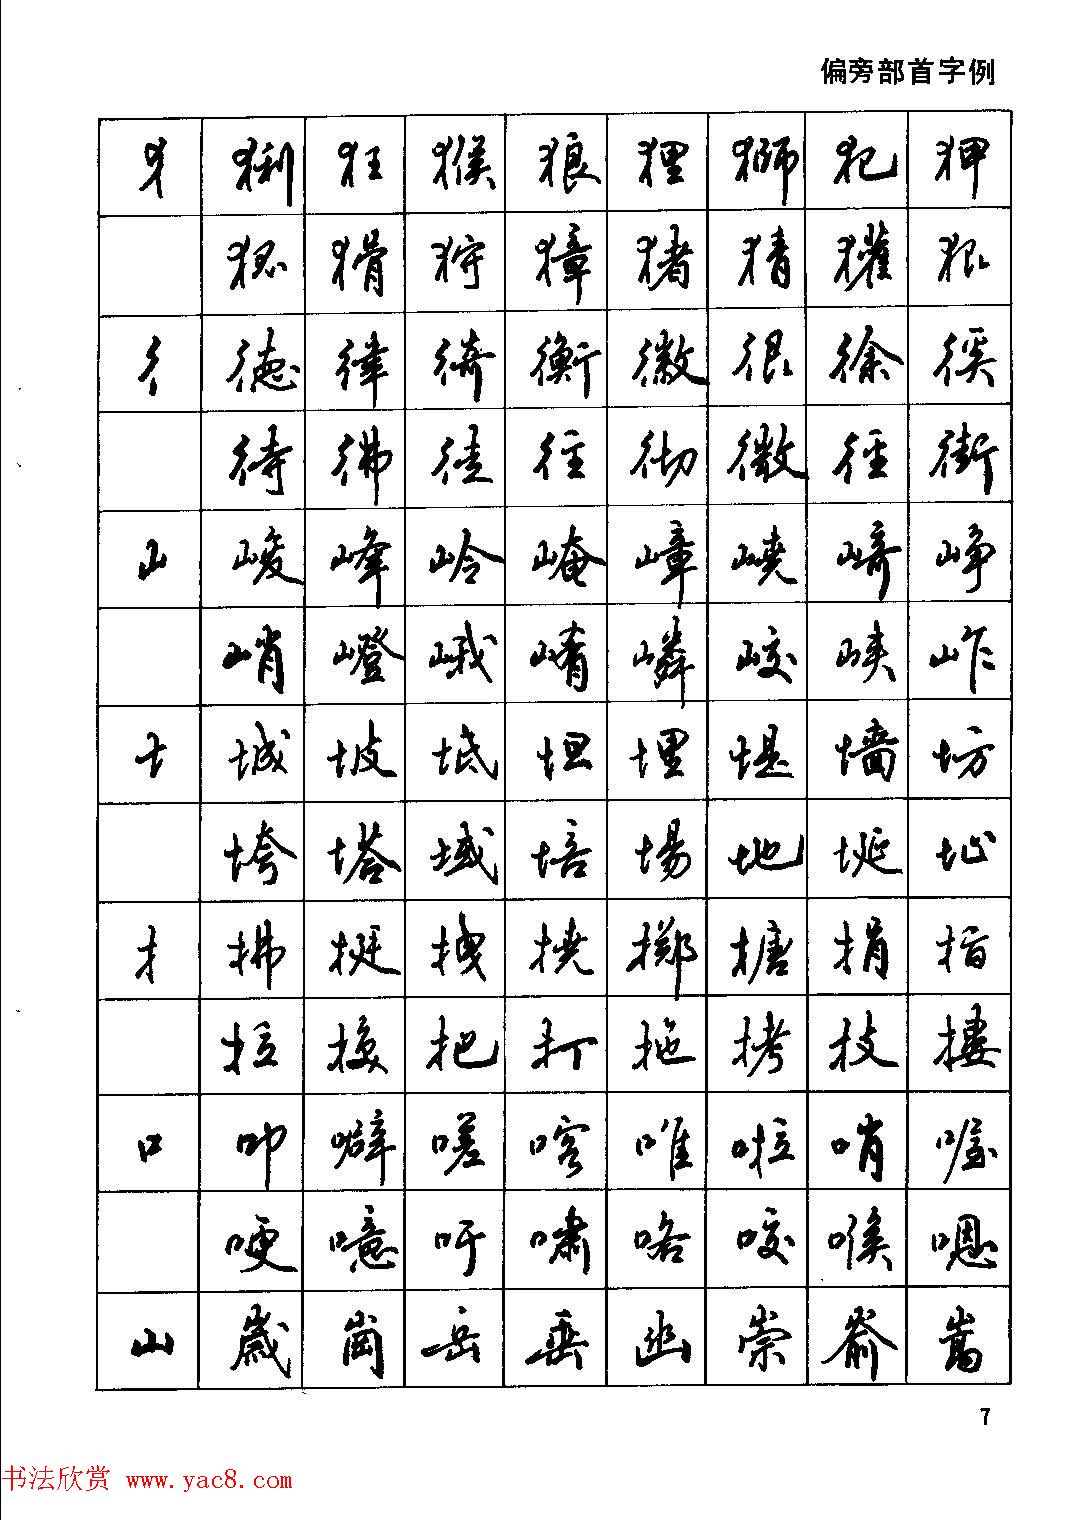 偏旁部首字例
犭 猁 狂 猴 狼 狸 獅 犯 狎
猾 狩 獐 猪 猜 獾 狠
彳 德 徫 徛 衡 徽 很 徐 徯
待 彿 徒 往 彻 微 径 街
山 峻 峰 岭 崦 嶂 峣 崎 峥
峭 嶝 峨 崤 嶙 峧 峡 岞
土 城 坡 坻 坦 埋 堤 墙 坊
垮 塔 域 培 場 地 埏 址
扌 拂 挺 拽 挠 掷 搪 捐 指
拉 换 把 打 拖 拷 技 搂
口 叩 噼 嗟 喀 唯 啦 哨 喔
哽 噫 吁 嘯 咯 咬 喉 嗯
山 崴 崗 岳 幽 崇 嵛 嵩
7
书法欣赏 www.yac8.com